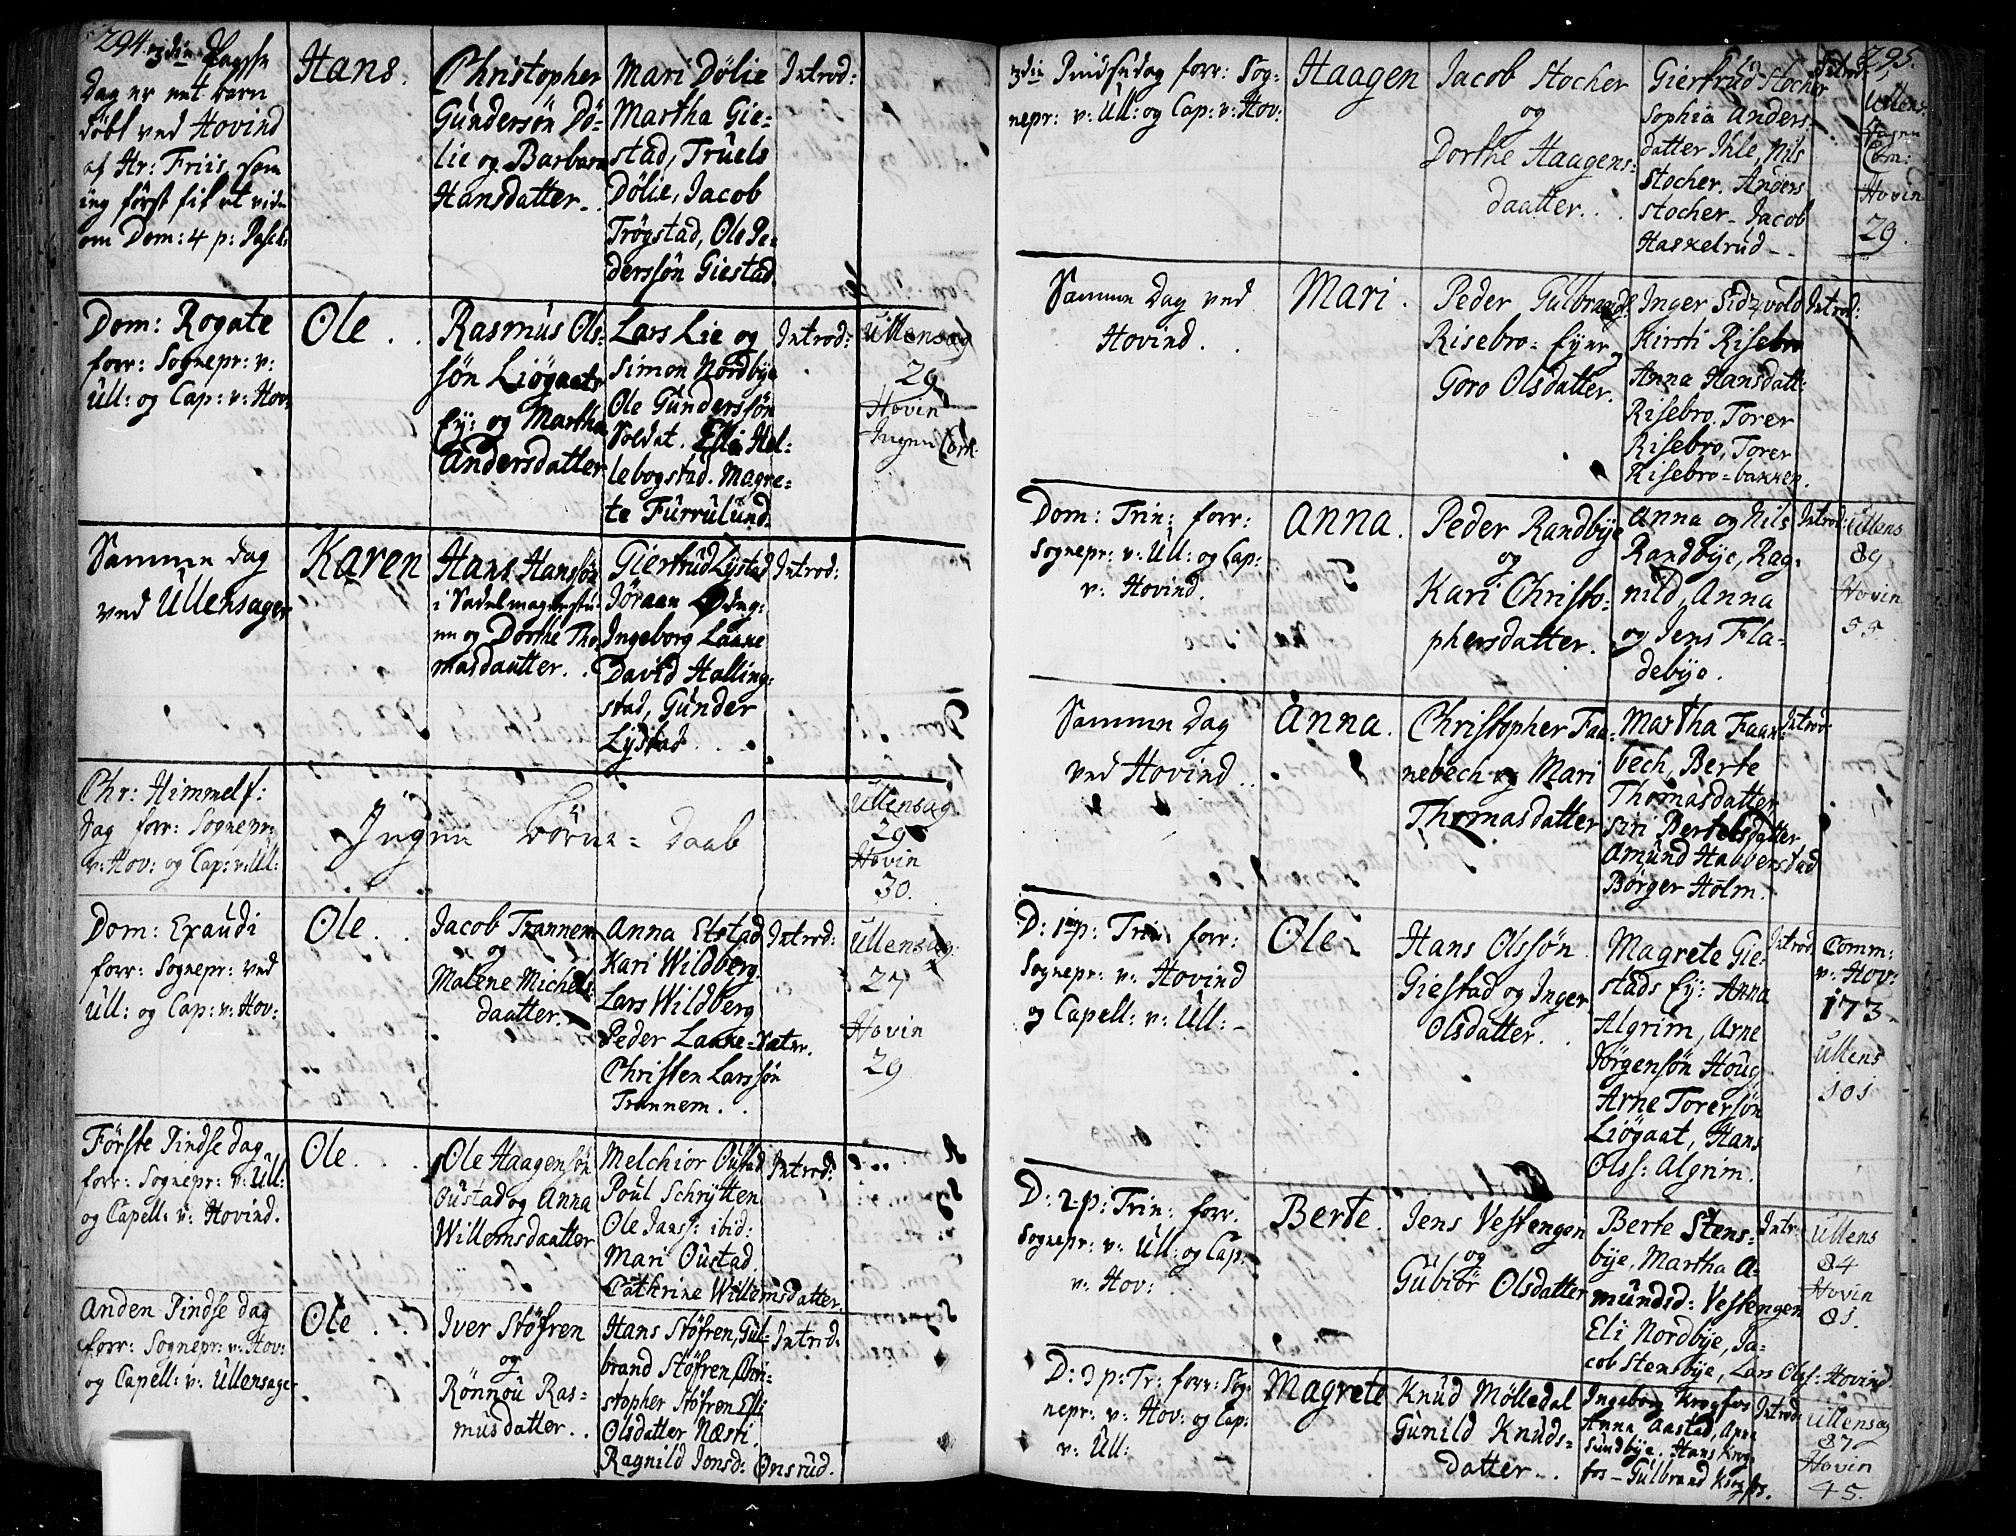 294.
3die Paasche
Dag er et barn
döbt ved Hovind
af Hr: Friis, som
jeg först fik at vide
om Dom: 4 p: Pasch:
Hans.
Christopher
Gundersön Dö-
lie og Barbara
Hansdatter.
Mari Dölie
Martha Gie-
stad, Truels
Dölie, Jacob
Trögstad, Ole Pe-
derssön Giestad.
Introd:
Dom: Rogate
forr: Sognepr: v:
Ull: og Cap: v: Hov:
Ole . .
Rasmus Ols-
sön Liögaats
Ey: og Martha
Andersdatter
Lars Lie og
Simon Nordbye
Ole Gunderssön
Soldat. Elli Hel-
lebogstad. Magre-
te Furrulund.
Introd:
Ullensag
29
Hovin
Ingen Com.
Samme dag
ved Ullensager
Karen
Hans Hanssön
i Sadelmagerstu-
en og Dorthe Tho-
masdautter. .
Giertrud Lystad
Jöraan
Ingeborg Laake
David Halling-
stad, Gunder
Lystad.
Introd:
Chr: Himmelf:
dag forr: Sognepr:
v: Hov: og Cap: v: Ull:
Ingen börne-daab
Ullensag
29
Hovin
30.
Dom: Exaudi
forr: Sognepr: ved
Ull: og Cap: v: Hov:
Ole . .
Jacob Trannem
og
Malene Michels-
daatter.
Anna Etstad
Kari Wildberg
Lars Wildberg
Peder Laake-Sæter.
Christen Larssön
Trannem. .
Introd:
Ullensag
27
Hovin
29
Förste Pindse dag
forr: Sognepr: v: Ull:
og Capell: v: Hovind.
Ole . . .
Ole Haagensön
Oustad og Anna
Willemsdaatter
Melchior Oustad
Poul Schrytten
Ole Janss: ibid:
Mari Oustad.
Cathrine Willemsdatter.
Introd:
Anden Pindse dag
forr: Sognepr: v: Hov:
og Capell: v: Ullensager
Ole . . .
Iver Stöfren
og
Rönnou Ras-
musdatter. .
Hans Stöfren, Gul-
brand Stöfren, Chri-
stopher Stöfren Elli
Olsdatter Næsti.
Ragnild Jonsd: Onsrud.
Introd:
295.
3die Pindsedag forr: Sog-
nepr: v: Ull: og Cap: v: Hov:
Haagen
Jacob Stocher
og
Dorthe Haagens-
daatter. .
Giertrud Stocher
Sophia Anders-
datter Ihle, Nils
Stocher. Anders
Stocher. Jacob
Haskelrud -
Introd:
Ullens:
Ingen
Com:
Hovin
29.
Samme Dag ved
Hovind. .
Mari.
Peder Gulbrands:
Risebro-Eyer
og
Goro Olsdatter.
Inger Sidzvold
Kirsti Risebro
Anna Hansdatt:
Risebro. Torer
Risebro, Torer
Risebro-bakken.
Introd:
Dom: Trin: forr:
Sognepr: v: Ull: og Cap:
v: Hovind.
Anna.
Peder Randbye
og
Kari Christo-
phersdatter.
Anna og Nils
Randbye, Rag-
nild, Anna
og Jens Fla-
debye.
Introd:
Ullens
89
Hovin
55
Samme dag
ved Hovind. .
Anna.
Christopher Faa-
nebech og Mari
Thomasdatter
Martha Faane-
bech, Berte
Thomasdatter
Siri Bertelsdatter
Amund Habberstad
Börger Holm.
Introd:
D: 1 p: Trin: forr:
Sognepr: v: Hovind
og Capell: v: Ull: -
Ole
Hans Olssön
Giestad og Inger
Olsdatter. .
Magrete Gie-
stads Ey: Anna
Algrim, Arne
Jörgensön Houg
Arne Torersön
Liögaat, Hans
Olss: Algrim.
Introd.
Comm:
v: Hov:
173.
Ullens
101
D: 2 p: Trin: forr.
Sognepr: v: Ull: og Cap:
v: Hov:
Berte.
Jens Vestengen
og
Gubiör Olsdatter
Berte Stens-
bye, Martha A-
mundsd: Vestengen
Eli Nordbye, Ja-
cob Stensbye, Lars Olss: Hovind.
Intr:
Ullens
84
Hovin
81.
D: 3 p: Tr: forr: Sog-
nepr: v: Hov: og Cap:
v: Ull:
Magrete
Knud Mölledal
Gunild Knuds-
datter. .
Ingeborg Krogfos
Anna Aastad, Anne
Sundbye. Hans Krog-
fos - Gulbrand Krogfos.
Introd:
Ullensag
87
Hovin
45.